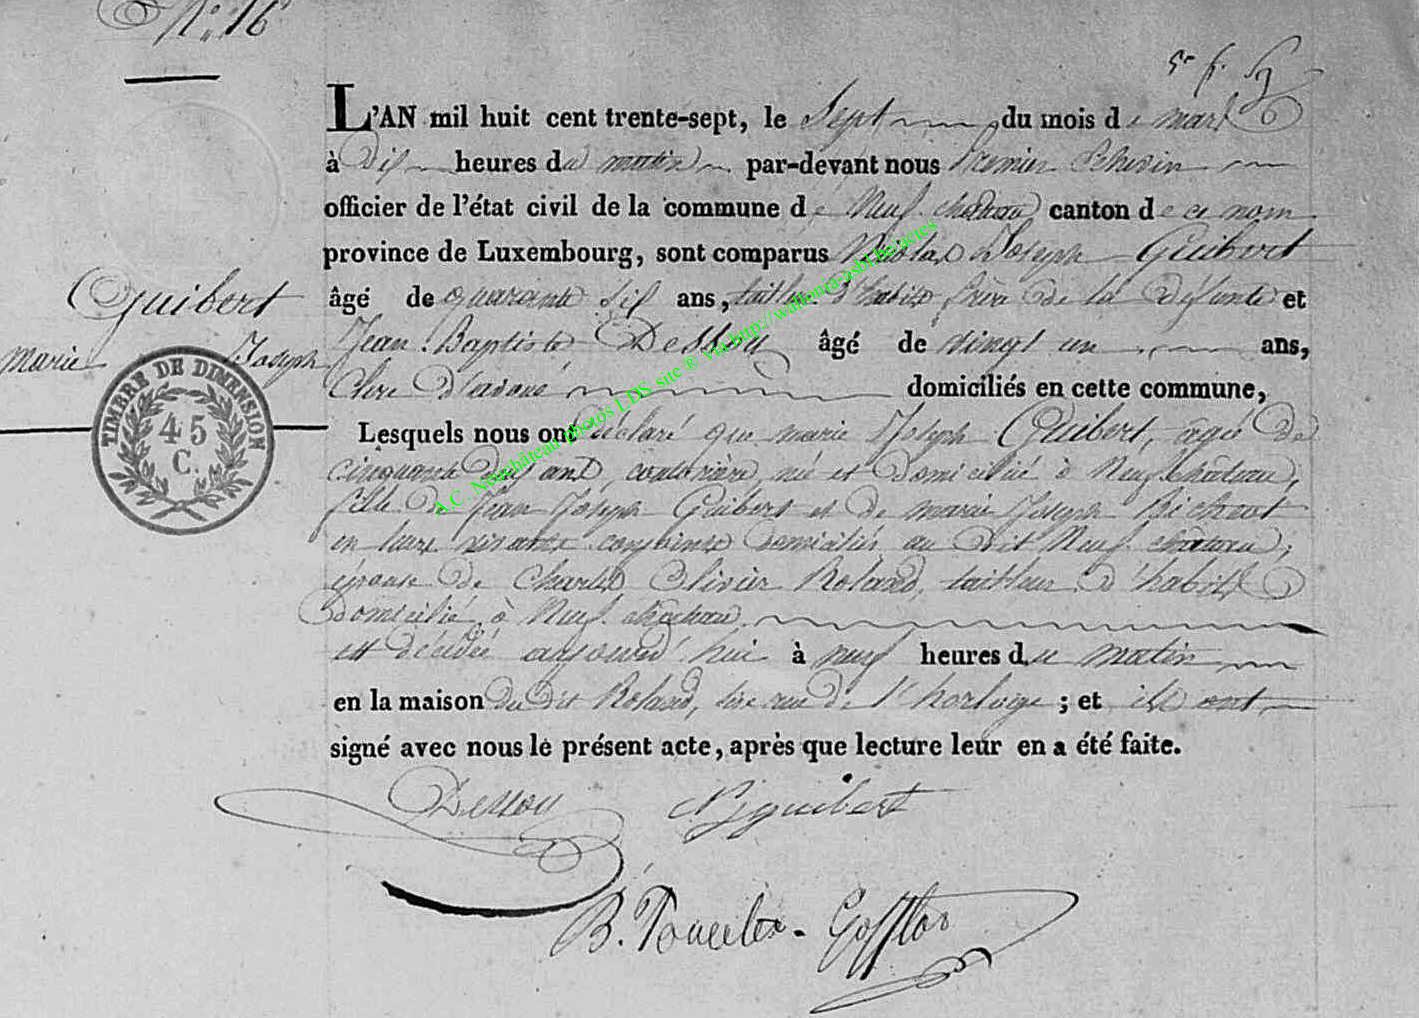 N.° 16
L'AN mil huit cent trente-sept, le Sept du mois de mars
à dix heures du matin par-devant nous Premier Echevin
officier de l'état civil de la commune de Neufchateau, canton de ce nom
province de Luxembourg, sont comparus Nicolas Joseph Guibert
âgé de quarante six ans, taill. d'habits frère de la défunte et
Jean Baptiste Dessoy âgé de vingt un ans,
Clerc d'avoué domiciliés en cette commune,
Guibert
marie Joseph
TIMBRE DE DIMENSION
45
C.
Lesquels nous ont déclaré que marie Joseph Guibert, agée de
cinquante ans, couturière, né et domicilié à Neufchâteau,
fille de Jean Joseph Guibert et de marie Joseph
en leurs vivants conjoints domiciliés au dit Neufchateau,
épouse de Charles Olivier Roland, tailleur d'habits
domicilié à Neufchateau
est décédée aujourd'hui à neuf heures du matin
en la maison du dit Roland, sise rue de l'horloge ; et ils ont
signé avec nous le présent acte, après que lecture leur en a été faite.
Dessoy NJ guibert
B. Poncelet - Gofflot
A.C. Neufchâteau photos LDS site ® via http://wallonia-asbl.be/actes